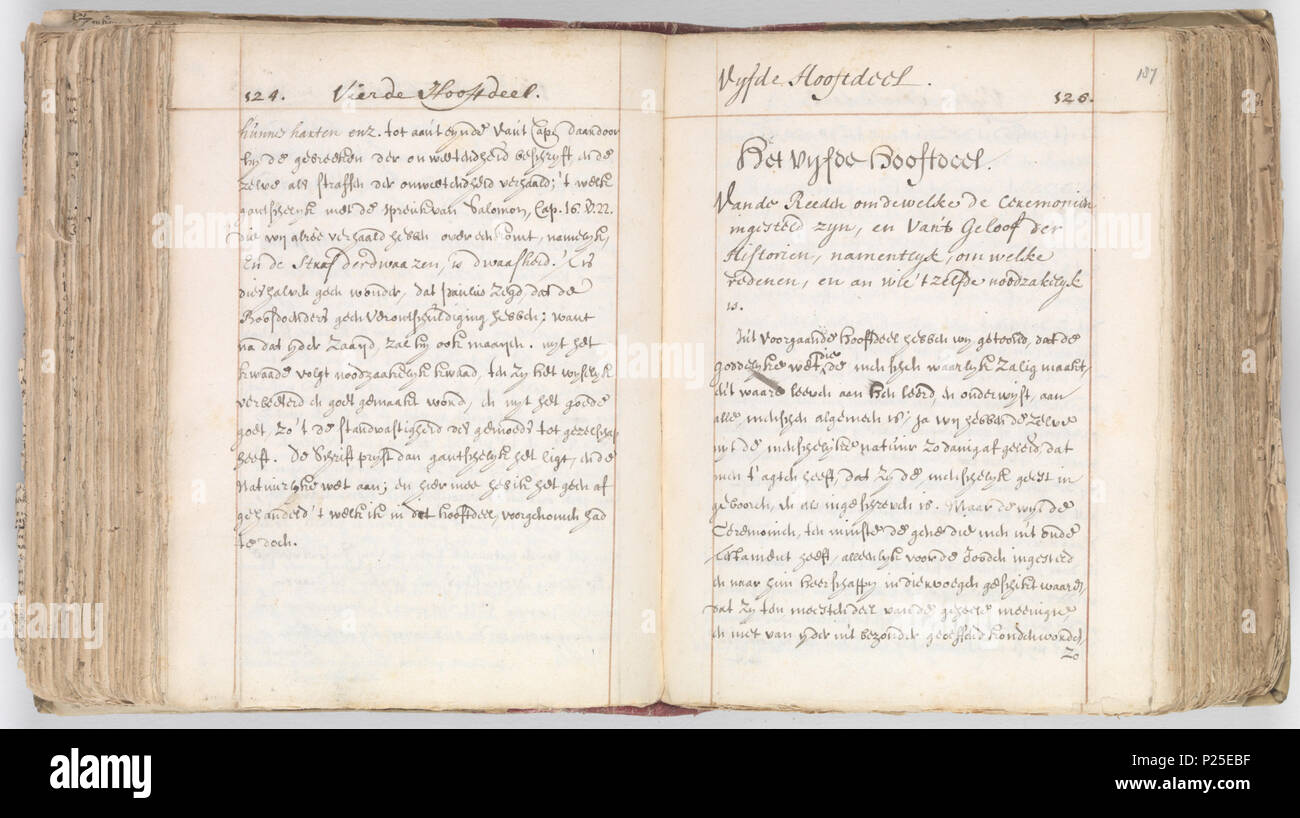 124. Vierde Hooftdeel.
hunne harten enz. tot aan't eynde van't Cap. daandoor
hy de gebreeken der onweetendheid beschryft, en de
zelve als straffen der onweetendheid verhaald; 't welk
gantschelyk met de spreuk van Salomon, Cap. 16. V. 22.
die wij alree verhaald hebben over een komt, namelyk,
En de Straf der dwaazen, is dwaasheid. 't Is
dierhalven geen wonder, dat Paulus zegd, dat de
Boosdoenders geen verontschuldiging hebben; want
na dat yder zaayd, zal hy ook maayen. uyt het
kwaade volgt noodzaakelyk kwaad, ten zy het wyselyk
verbeeterd en goet gemaakt word, en uyt het goede
goet, zo 't de standvastigheid des gemoeds tot gezelschap
heeft. De Schrift pryst dan gantschelyk het ligt, en de
Natuurlyke wet aan; en hier mee heb ik het geen af
gehandeld 't welk ik in dit hooftdeel, voorgenomen had
te doen.
Vyfde Hooftdeel.
187
126.
Het Vyfde Hooftdeel.
Van de Reeden om dewelke de Ceremonien
ingesteld zyn, en Van't Geloof der
Historien, namentlyk, om welke
redenen, en an wie 't zelfde noodzakelyk
is.
In't voorgaande Hooftdeel hebben wy getoond, dat de
goddelyke wet, die de menschen waarlyk zalig maakt,
en't waare leeven aan hen leerd, en onderwyst, aan
alle menschen algemeen is; ja wy hebben de zelve
uyt de menschelyke natuur zodanig afgeleid, dat
men 't agten heeft, dat zy de menschelyk geest in
gebooren, en als ingeschreven is. Maar dewyl de
Ceremonien, ten minste de gene die men in't oude
Testament heeft, alleenlyk voor de Jooden ingesteld
en naar hun heerschappy in diervoegen geschikt waaren,
dat zy ten meestendeel van de geheele meenigte
en niet van yder in't bezonder geoeffend konden worden,
zo
alamy
Image ID: P25EBF
www.alamy.com